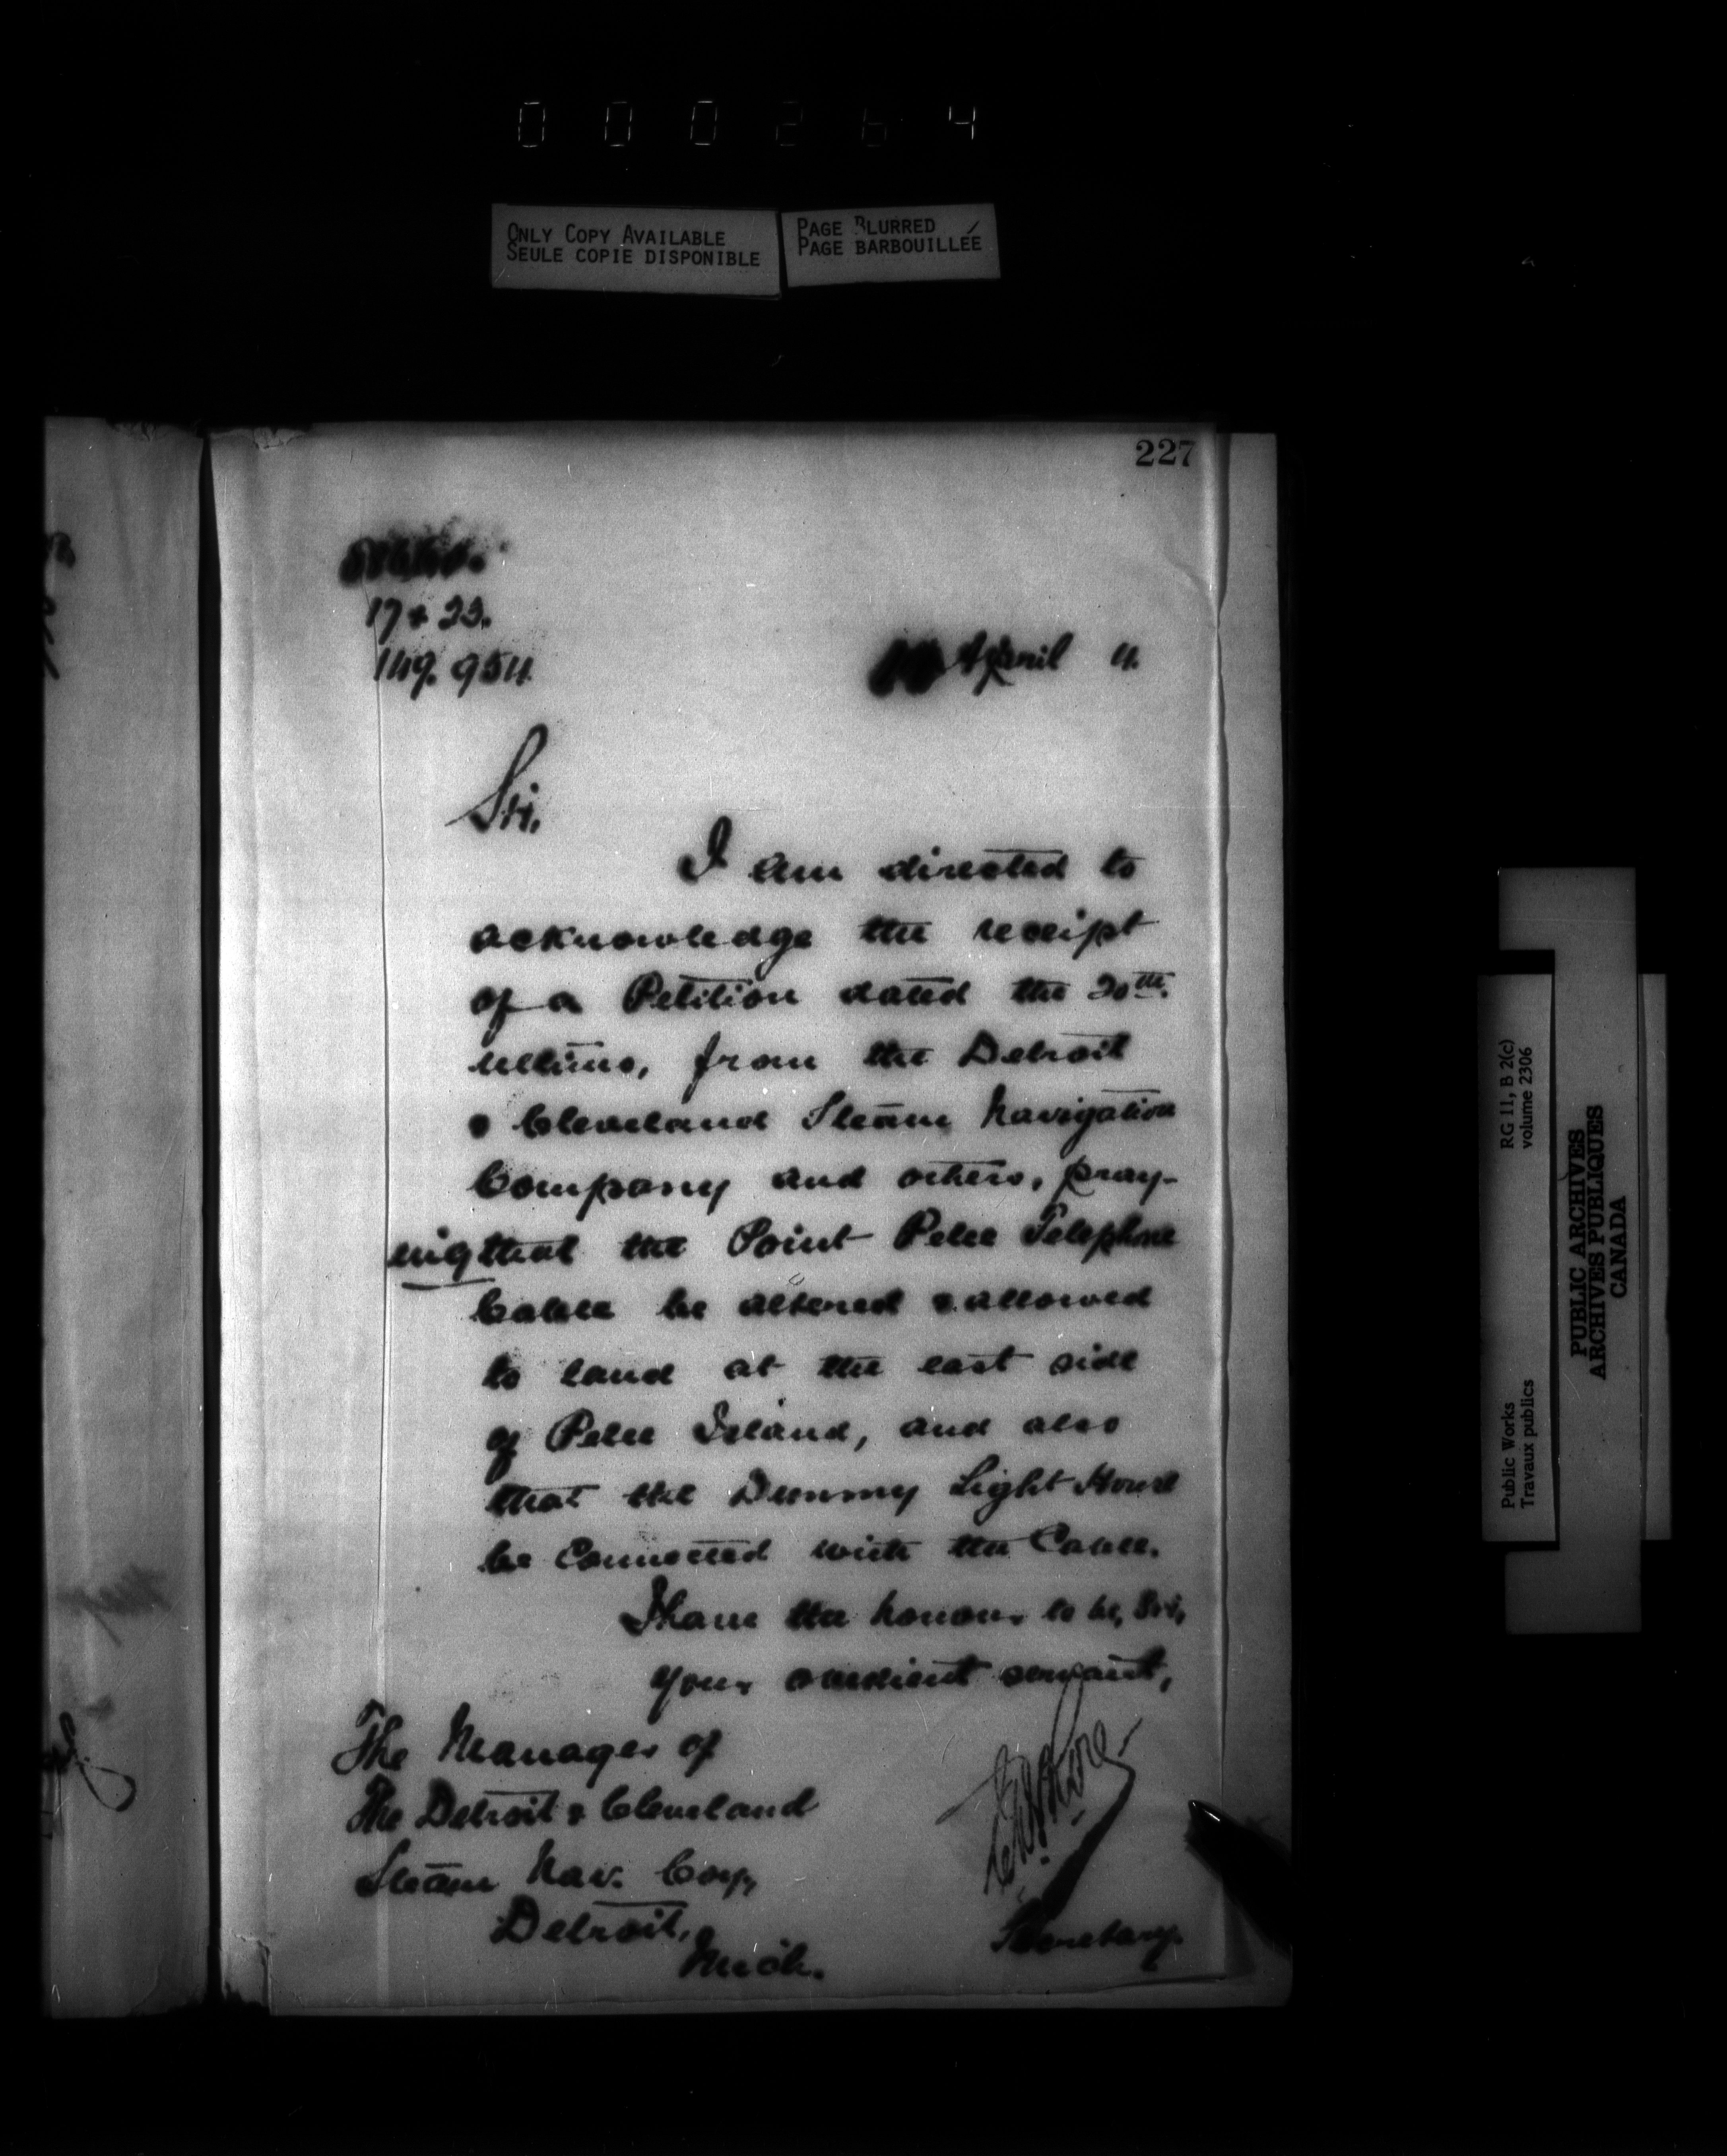 000264
ONLY COPY AVAILABLE
SEULE COPIE DISPONIBLE
PAGE BLURRED
PAGE BARBOUILLÉE
227
17 & 23.
149.954.
April 4.
Sir,
I am directed to
acknowledge the receipt
of a Petition dated the 20th.
ultimo, from the Detroit
& Cleveland Steam Navigation
Company and others, pray-
ing that the Point Pelee Telephone
Cable be altered & allowed
to land at the east side
of Pelee Island, and also
that the Dummy Light House
be Connected with the Cable.
I have the honour to be, Sir,
Your obedient servant,
The Manager of
The Detroit & Cleveland
Steam Nav. Coy,
Detroit,
Mich.
Secretary.
Public Works
Travaux publics
RG 11, B 2(c)
volume 2306
PUBLIC ARCHIVES
ARCHIVES PUBLIQUES
CANADA